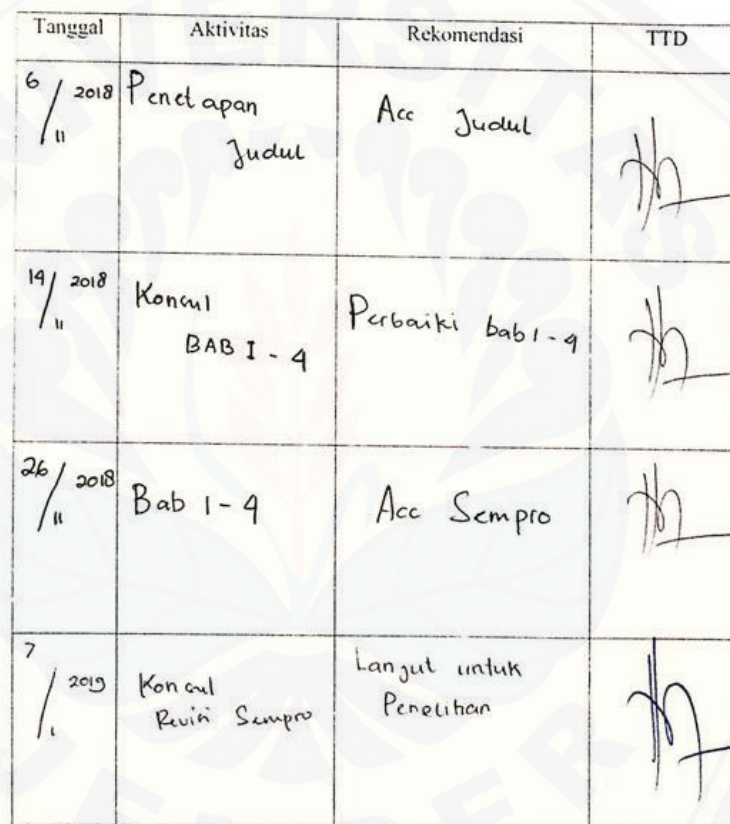 Tanggal Aktivitas Rekomendasi TTD
6/11 2018 Penetapan Judul Acc Judul
14/11 2018 Konsul BAB I - 4 Perbaiki bab 1-4
26/11 2018 Bab 1-4 Acc Sempro
7/1 2019 Konsul Revisi Sempro Lanjut untuk Penelitian
UNIVERSITAS
JEMBER